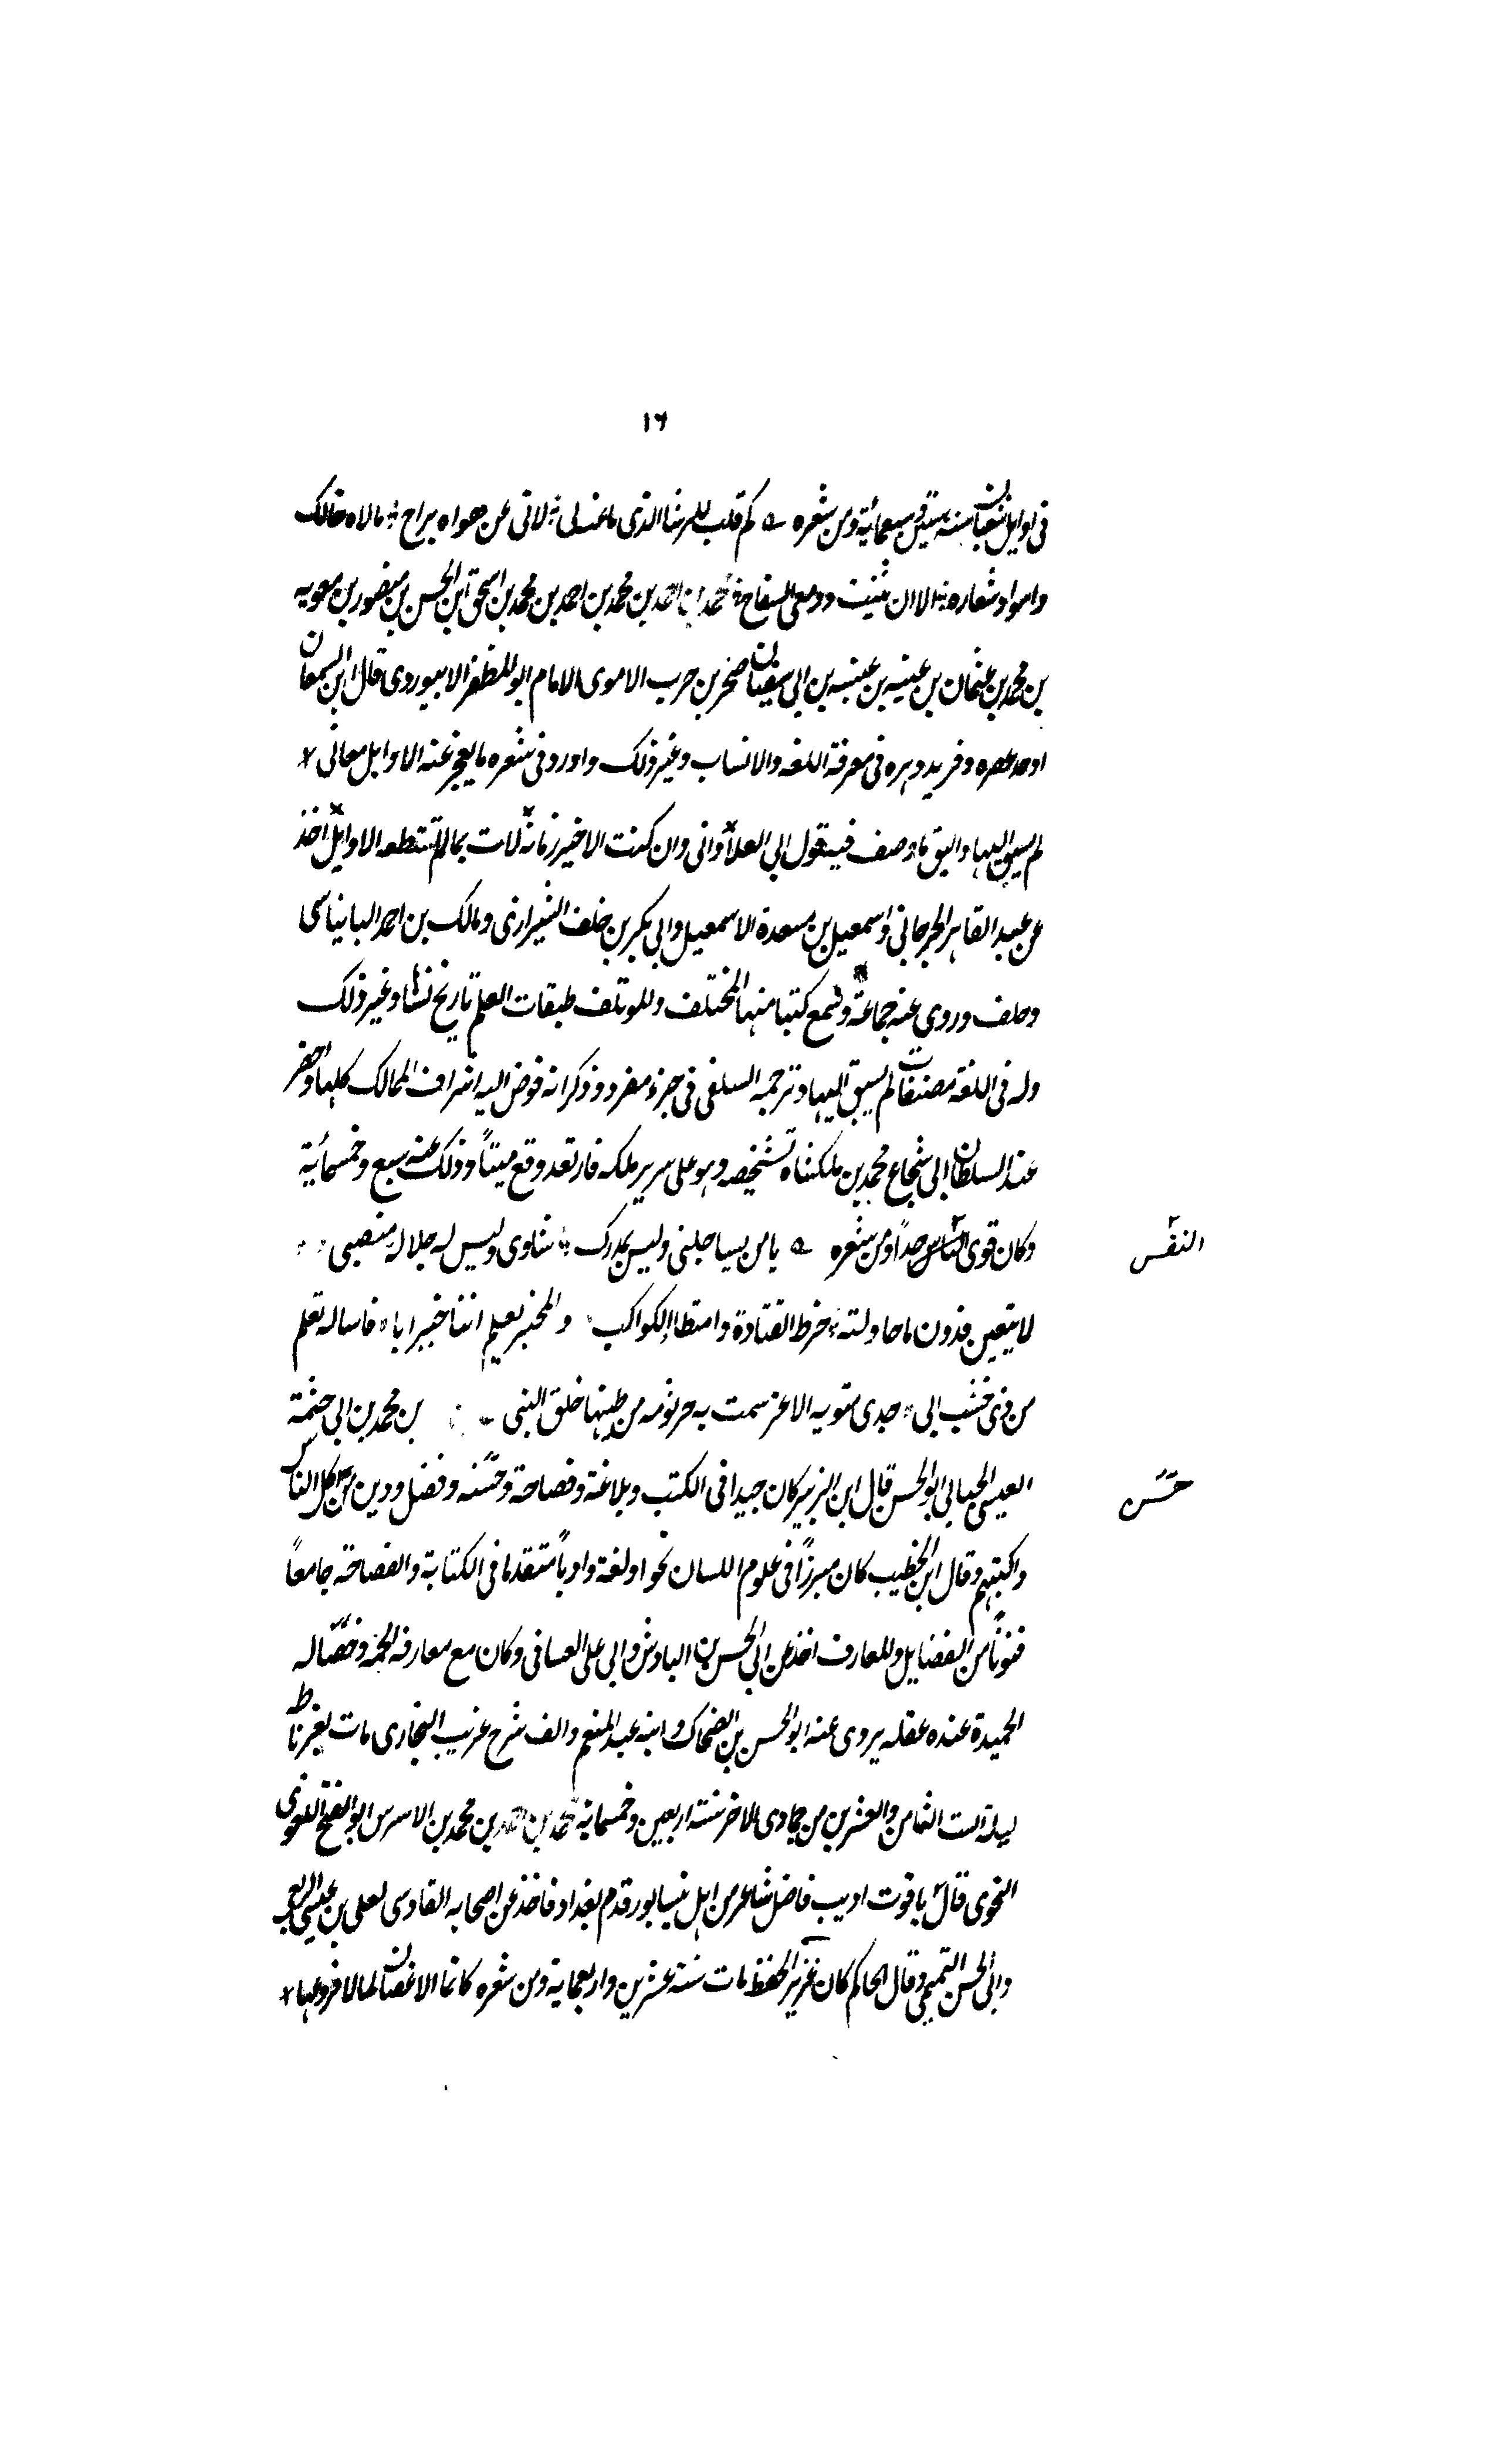 ١٦
فى اوايل شعبان سنة ستين وسبعمائة ومن شعره كم قلب للرضا الذى ما عنه لى لاقى عن هواه براح مالاه خالك
واسواد شعاره الا ان شبت ودمعى السفاح محمد بن احمد بن محمد بن احمد بن محمد بن اسحق ابن الحسن بن منصور بن معويه
بن محمد بن عثمان بن عيينه بن عنبسه بن ابى سفيان صخر بن حرب الاموى الامام ابو المظفر الابيوردى قال ابن السمعان
اوحد عصره وفريد دهره فى معرفة اللغه والانساب وغير ذلك واورد فى شعره ما يعجز عنه الاوايل معانى
لم يسبق اليها واليق ما وصف فيه قول ابى العلا وانى وان كنت الاخير زمانه لات بما لم تستطعه الاوايل اخذ
عن عبد القاهر الجرجانى واسمعيل بن مسعدة الاسمعيل وابى بكر بن خلف الشيرازى ومالك بن احمد البانياسى
وخلف وروى عنه جماعة وجمع كتبا منها المختلف والموتلف طبقات العلم تاريخ نسا وغير ذلك
وله فى اللغة مصنفات لم يسبق اليها وترجمه السلفى فى جزء مفرد وذكر انه فوض اليه اشراف الممالك كلها واحضر
عند السلطان ابى شجاع محمد بن ملكشاه تشخيصه وهو على سرير ملكه فارتعد وقع ميتاً وذلك سنه سبع وخمسمائة
وكان قوى الناس جداً ومن شعره يا من يساجلنى وليس بمدرك شاوى وليس له جلالة منصبى
النفس
لا تتعبن فدون ما حاولته خرط القتادة وامتطا الكواكب والمجد يعلم اننا خير ابا فاساله تعلم
من ذى حسب ابى جدى معويه الاغر سمت به جرثومه من طينها خلق النبى بن محمد بن ابى خيثمة
العيسى الجيابى ابو الحسن قال ابن الزبير كان جيدا فى الكتب وبلاغة وفصاحة وحسنه وفضل ودين من اكل الناس
حسن
واكتبهم وقال ابن الخطيب كان مبرزاً فى علوم اللسان نحوا ولغة وادباً متقدما فى الكتابة والفصاحة جامعاً
فنوناً من الفضايل والمعارف اخذ عن ابى الحسن بن الباذش وابى على الغسانى وكان مع معارفه الجمه وخصاله
الحميدة عنده غفله يروى عنه ابو الحسن بن الضحاك وابنه عبد المنعم والف شرح غريب البخارى مات بغرناط
ليلة الست الثامن والعشرين من جمادى الاخر سنة اربعين وخمسماية محمد بن احمد بن محمد بن الاسرس ابو الفتح اللغوى
النحوى قال ياقوت اديب فاضل شاعر من اهل نيسابور قدم بغداد فاخذ عن اصحابه القادسى لعلى بن عيسى الربعى
وابى الحسن التميمى وقال الحاكم كان غزير الحفظ مات سنة عشرين واربعماية ومن شعره كانما الاغصان لما لا فروعها